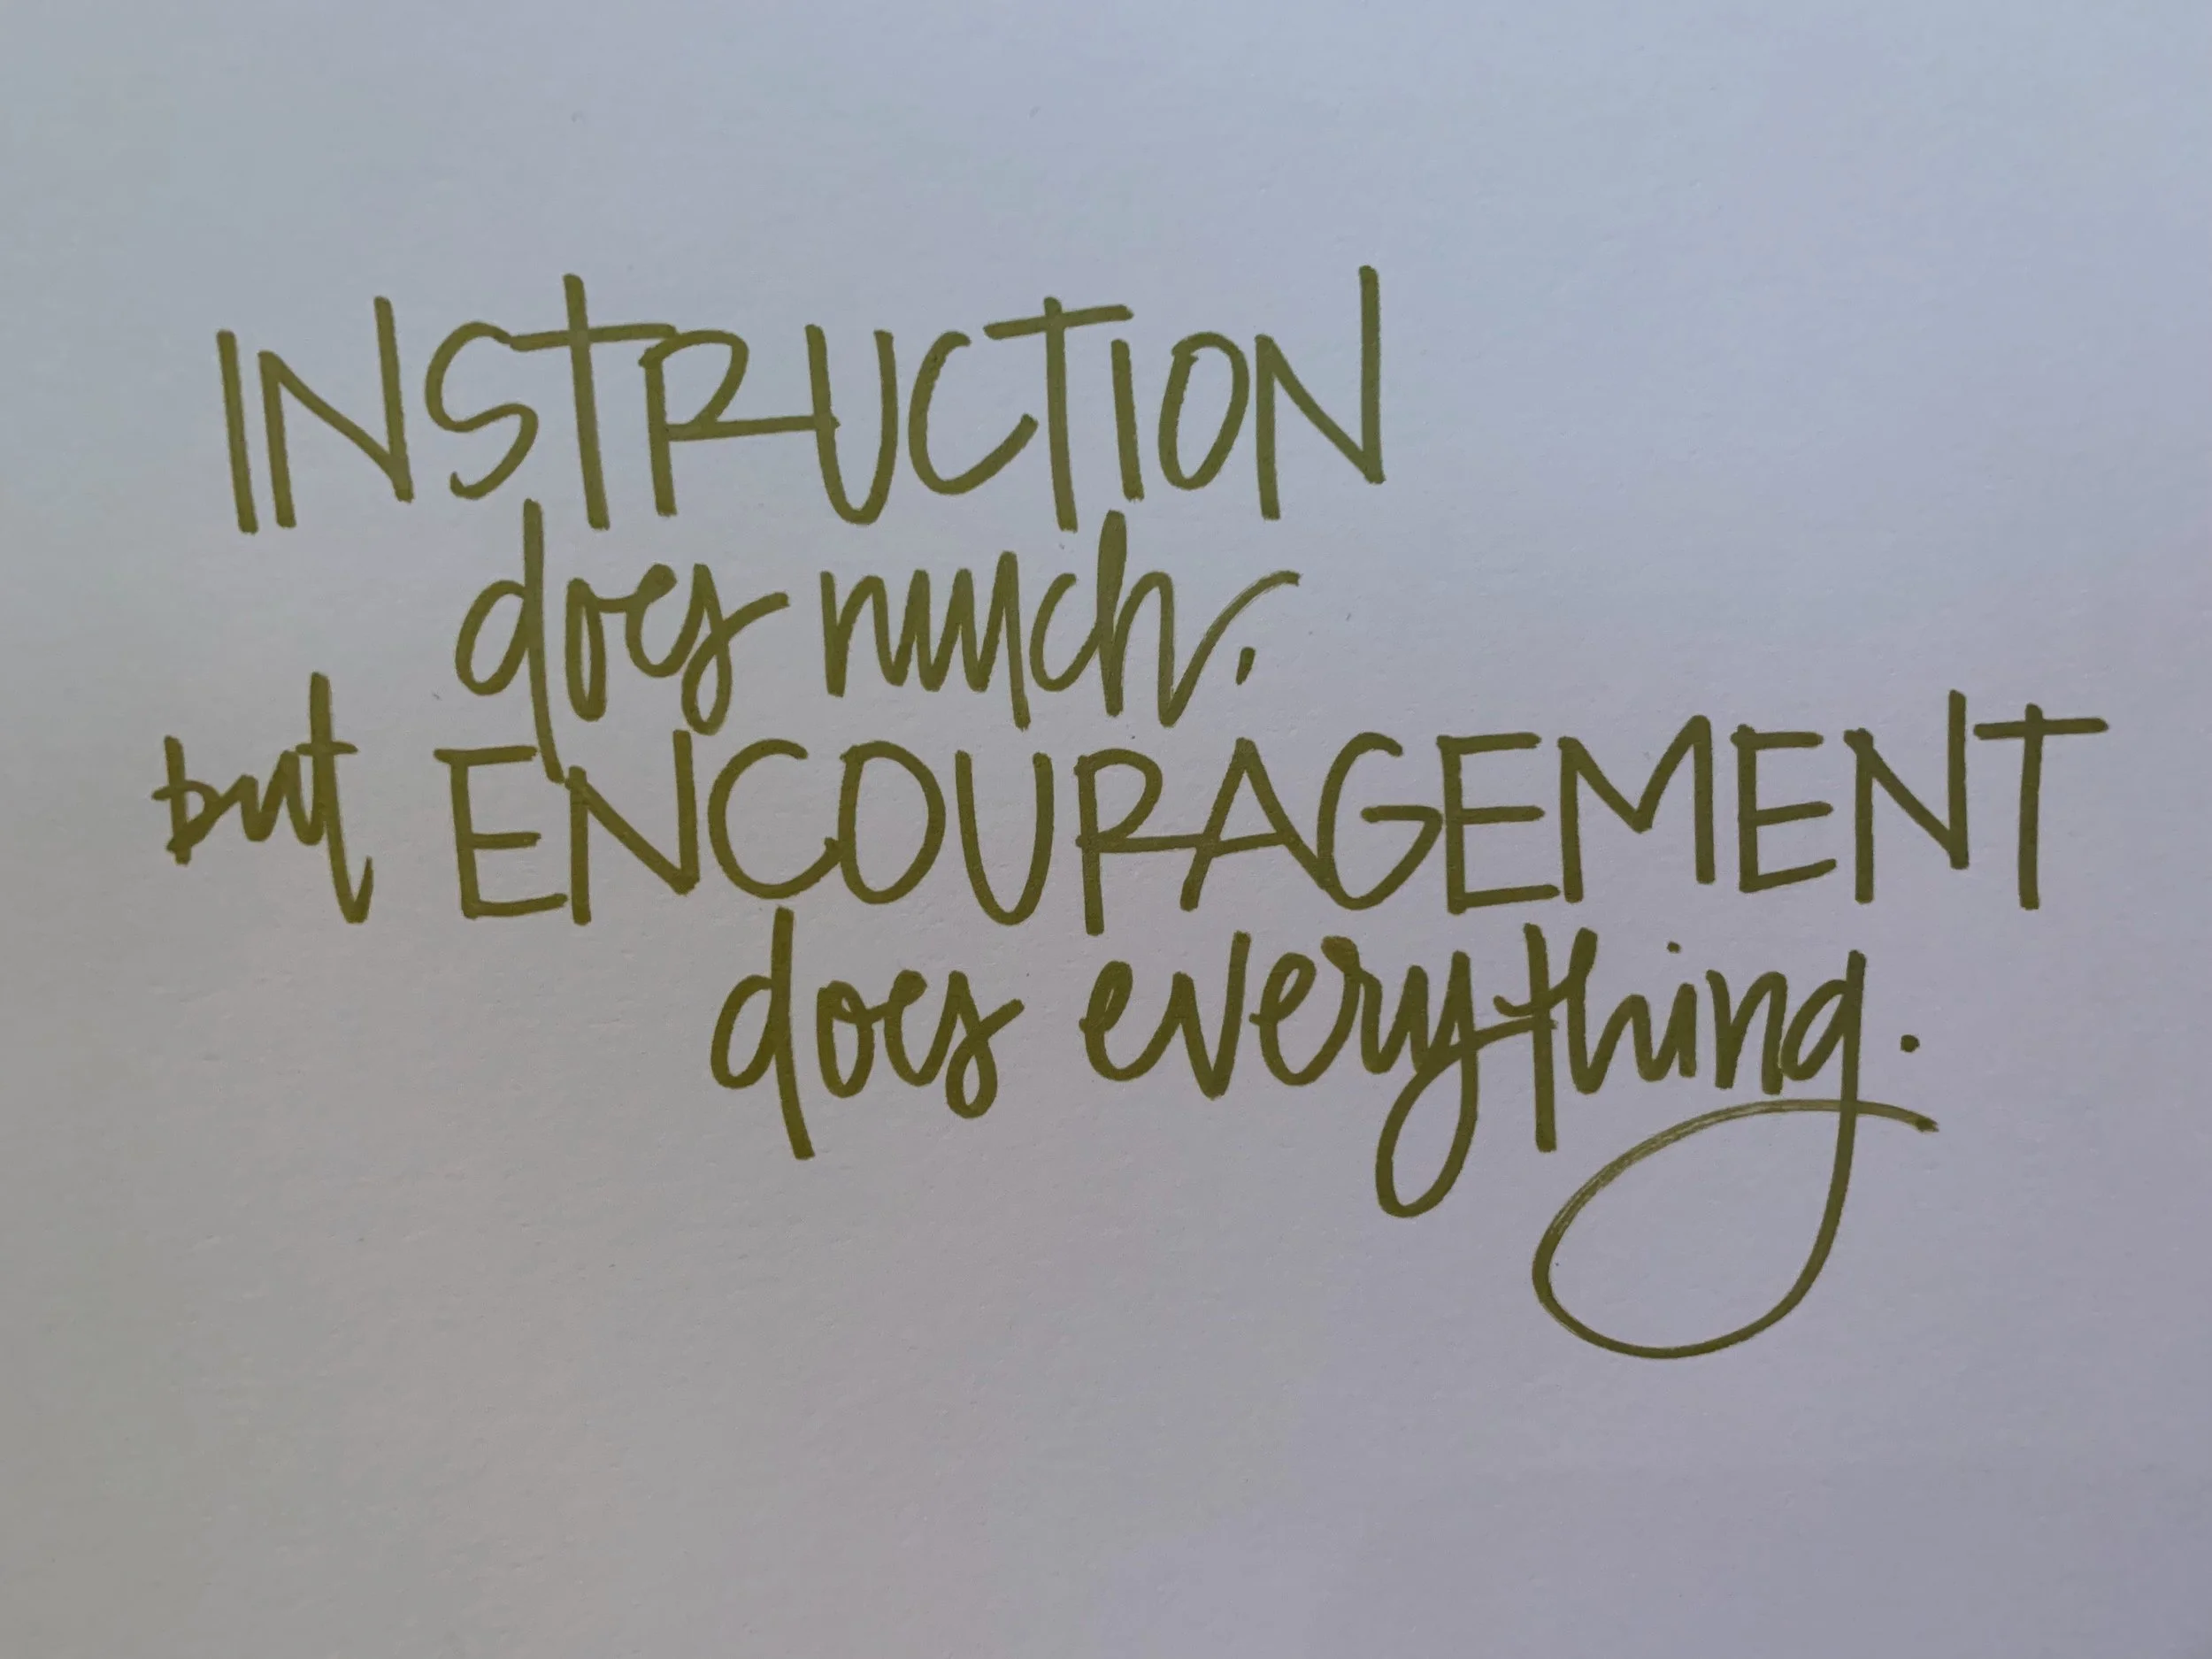 INSTRUCTION
does much,
but ENCOURAGEMENT
does everything.